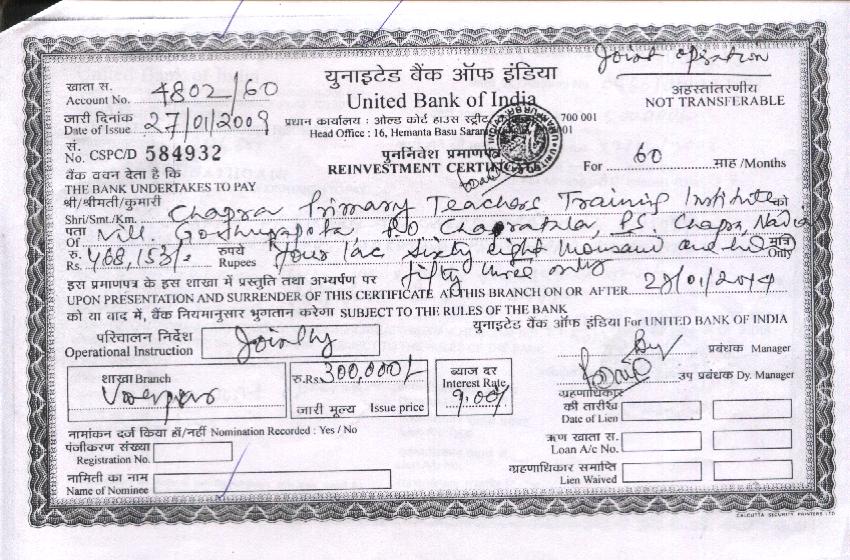 Joint opration
खाता स.
Account No. 4802/60
युनाइटेड बैंक ऑफ इंडिया
United Bank of India
अहस्तांतरणीय
NOT TRANSFERABLE
जारी दिनांक
Date of Issue 27/01/2009
प्रधान कार्यालय : ओल्ड कोर्ट हाउस स्ट्रीट 700 001
Head Office : 16, Hemanta Basu Saran 001
सं.
No. CSPC/D 584932
पुनर्निवेश प्रमाणपत्र
REINVESTMENT CERTIFICATE
For 60 माह /Months
बैंक वचन देता है कि
THE BANK UNDERTAKES TO PAY
श्री/श्रीमती/कुमारी
Shri/Smt./Km. Chapra Primary Teachers Training Institute को
पता
Of Vill. PO Chapra, PS. Chapra, Nadia
रु.
Rs. 468,153/= रुपये
Rupees four lac sixty eight thousand and मात्र
Only
fifty three only
इस प्रमाणपत्र के इस शाखा में प्रस्तुति तथा अभ्यर्पण पर
UPON PRESENTATION AND SURRENDER OF THIS CERTIFICATE AT THIS BRANCH ON OR AFTER 27/01/2014
को या बाद में, बैंक नियमानुसार भुगतान करेगा SUBJECT TO THE RULES OF THE BANK
युनाइटेड बैंक ऑफ इंडिया For UNITED BANK OF INDIA
परिचालन निर्देश
Operational Instruction Jointly
प्रबंधक Manager
उप प्रबंधक Dy. Manager
शाखा Branch
रु.Rs. 300,000/-
जारी मूल्य Issue price
ब्याज दर
Interest Rate
9.00%
ग्रहणाधिकार
की तारीख
Date of Lien
नामांकन दर्ज किया हाँ/नहीं Nomination Recorded : Yes / No
पंजीकरण संख्या
Registration No.
ऋण खाता स.
Loan A/c No.
नामिती का नाम
Name of Nominee
ग्रहणाधिकार समाप्ति
Lien Waived
CALCUTTA SECURITY PRINTERS LTD